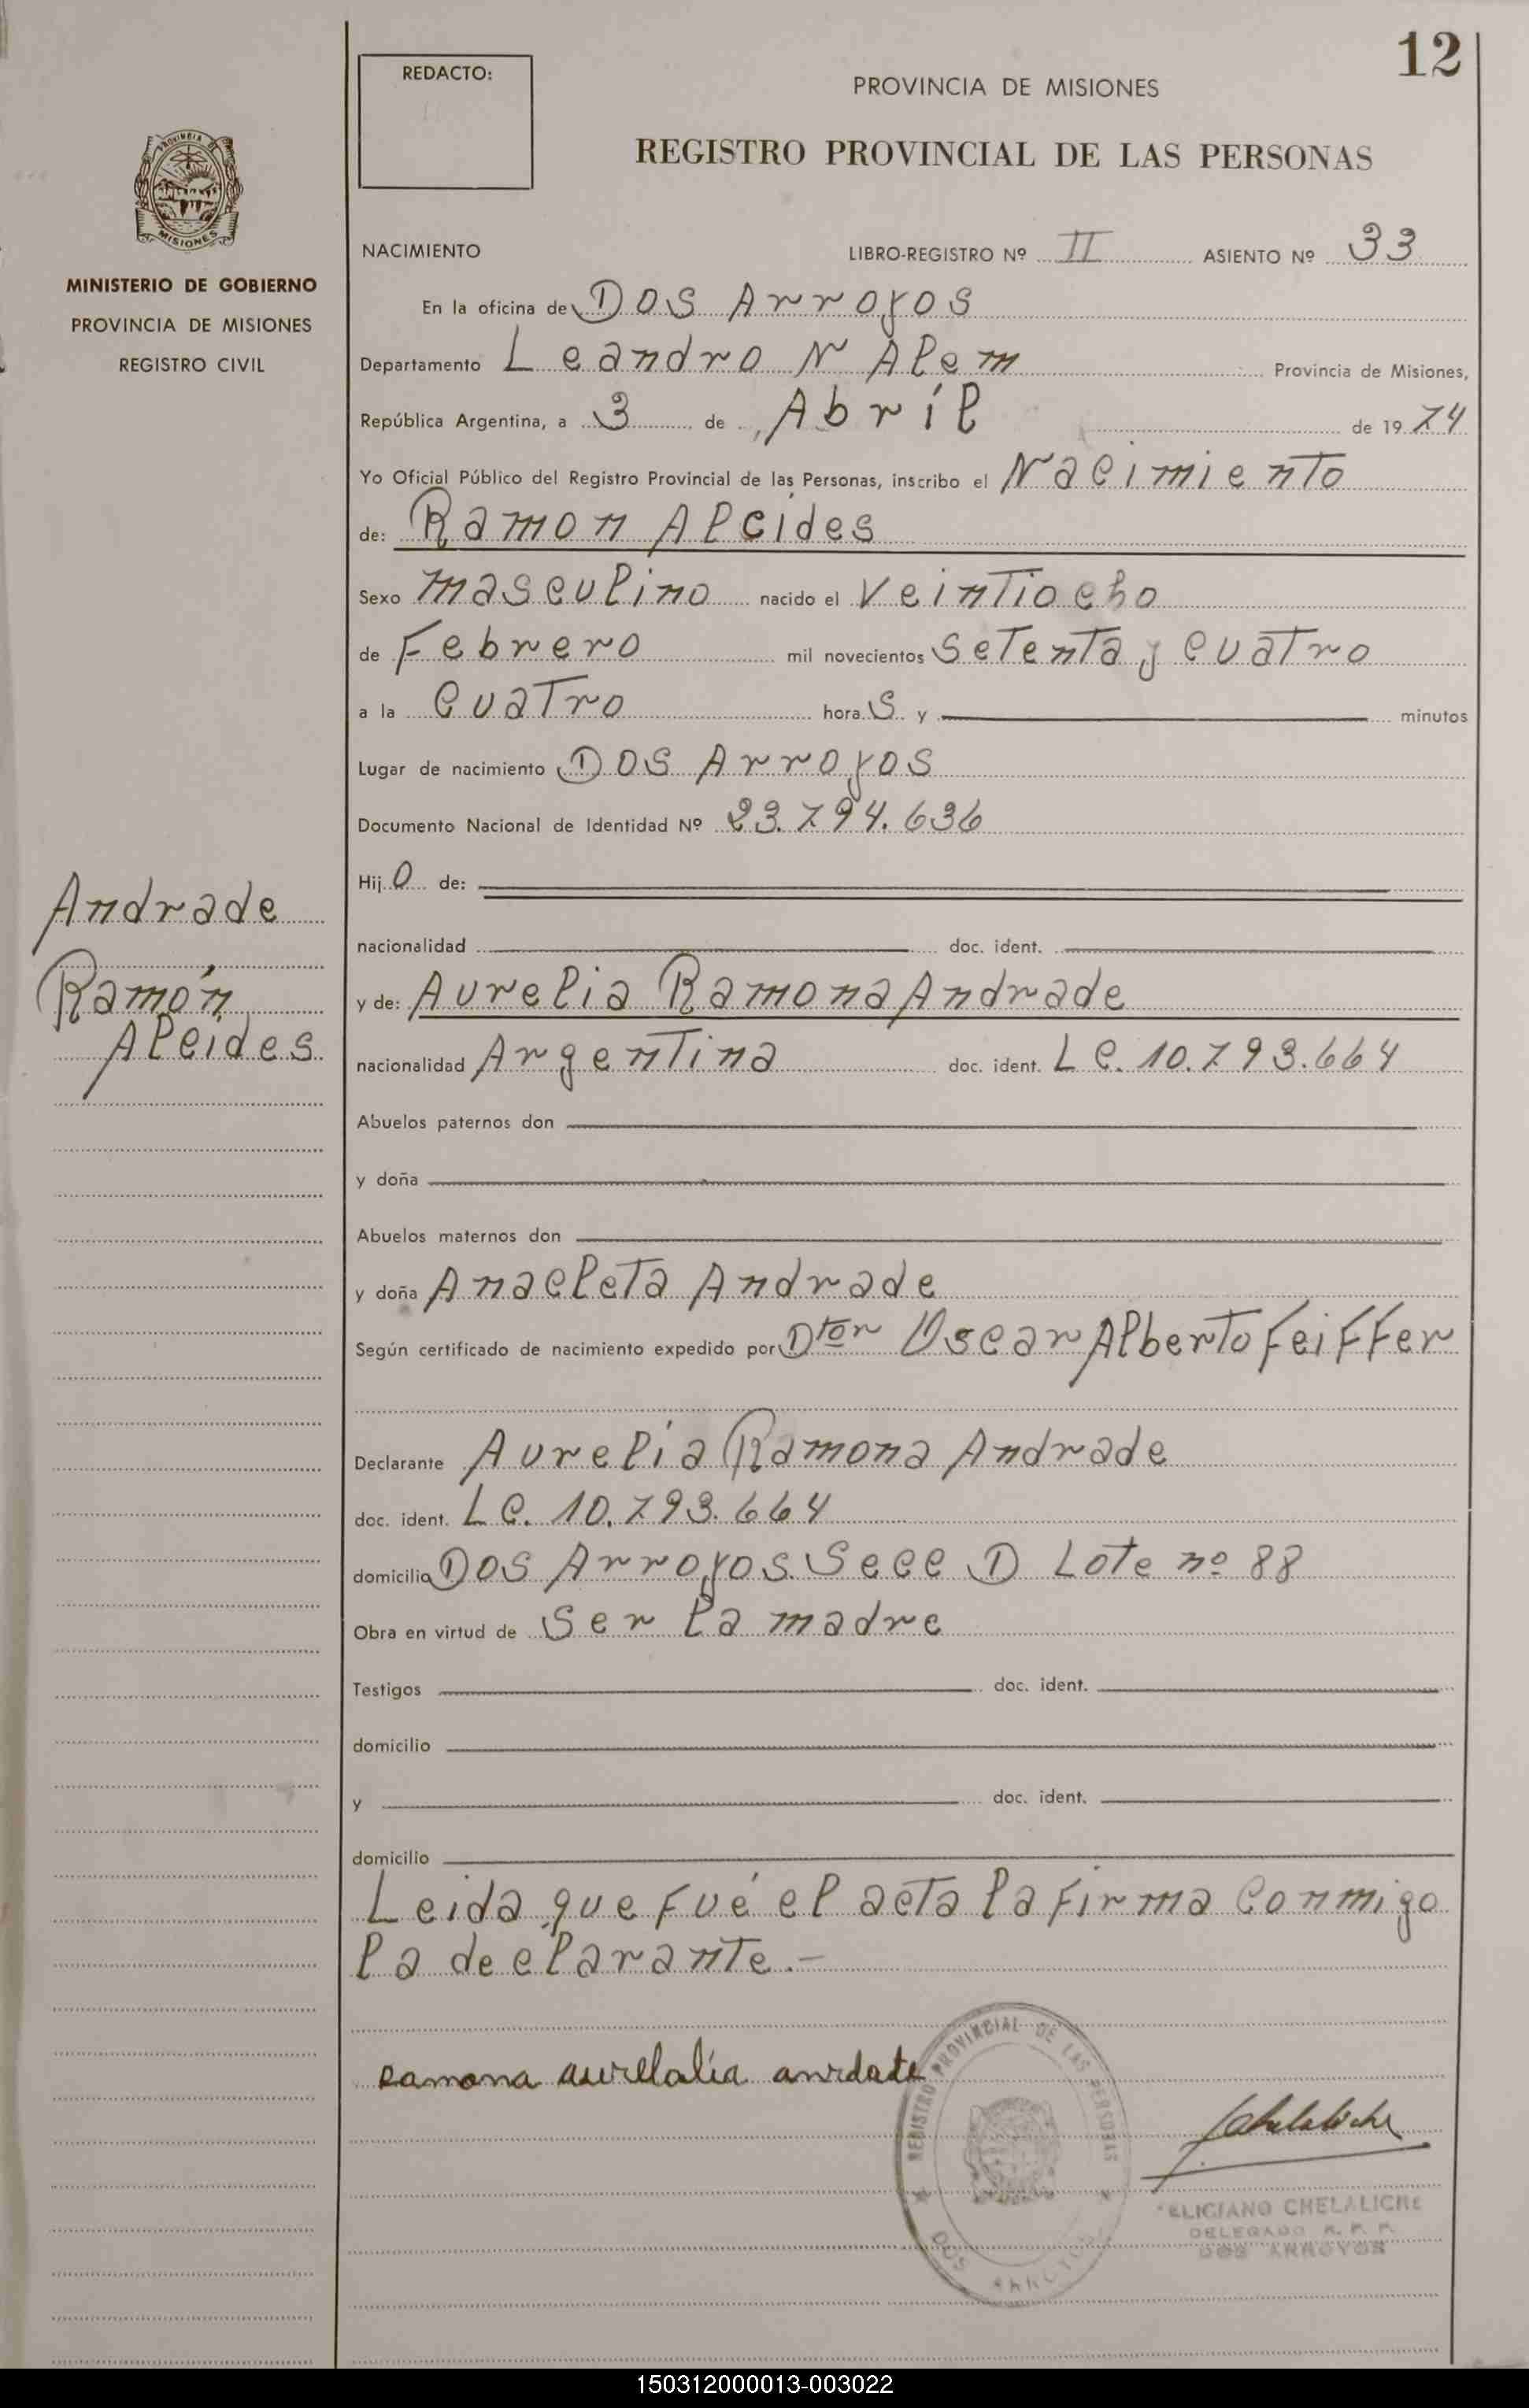 12
REDACTO:
PROVINCIA DE MISIONES
REGISTRO PROVINCIAL DE LAS PERSONAS
PROVINCIA DE
MISIONES
MINISTERIO DE GOBIERNO
PROVINCIA DE MISIONES
REGISTRO CIVIL
NACIMIENTO LIBRO-REGISTRO Nº II ASIENTO Nº 33
En la oficina de Dos Arroyos
Departamento Leandro N Alem Provincia de Misiones,
República Argentina, a 3 de Abril de 19 74
Yo Oficial Público del Registro Provincial de las Personas, inscribo el Nacimiento
de: Ramon Alcides
Sexo masculino nacido el Veintiocho
de Febrero mil novecientos Setenta y cuatro
a la cuatro hora S y minutos
Lugar de nacimiento Dos Arroyos
Documento Nacional de Identidad Nº 23.794.636
Hij o de:
Andrade
Ramón
Alcides
nacionalidad doc. ident.
y de: Aurelia Ramona Andrade
nacionalidad Argentina doc. ident. L C. 10.793.664
Abuelos paternos don
y doña
Abuelos maternos don
y doña Anacleta Andrade
Según certificado de nacimiento expedido por Dtor Oscar Alberto Feiffer
Declarante Aurelia Ramona Andrade
doc. ident. L C. 10.793.664
domicilio Dos Arroyos Secc D Lote nº 88
Obra en virtud de Ser la madre
Testigos doc. ident.
domicilio
y doc. ident.
domicilio
Leida que fué el acta la firma conmigo
la declarante.-
Ramona aurellalia anrdade
REGISTRO PROVINCIAL DE LAS PERSONAS
DOS ARROYOS
Chelaliche
FELICIANO CHELALICHE
DELEGADO R. P. P.
DOS ARROYOS
150312000013-003022